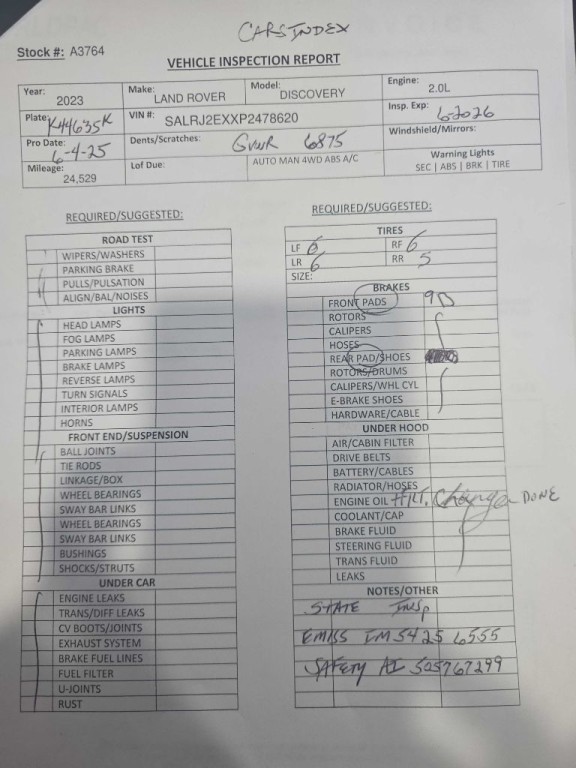 CARSINDEX
Stock #: A3764
VEHICLE INSPECTION REPORT
Year: 2023
Make: LAND ROVER
Model: DISCOVERY
Engine: 2.0L
Plate: K44635K
VIN #: SALRJ2EXXP2478620
Insp. Exp: 6-2026
Pro Date: 6-4-25
Dents/Scratches: GVWR 6875
Windshield/Mirrors:
Mileage: 24,529
Lof Due:
AUTO MAN 4WD ABS A/C
Warning Lights
SEC | ABS | BRK | TIRE
REQUIRED/SUGGESTED:
ROAD TEST
WIPERS/WASHERS
PARKING BRAKE
PULLS/PULSATION
ALIGN/BAL/NOISES
LIGHTS
HEAD LAMPS
FOG LAMPS
PARKING LAMPS
BRAKE LAMPS
REVERSE LAMPS
TURN SIGNALS
INTERIOR LAMPS
HORNS
FRONT END/SUSPENSION
BALL JOINTS
TIE RODS
LINKAGE/BOX
WHEEL BEARINGS
SWAY BAR LINKS
WHEEL BEARINGS
SWAY BAR LINKS
BUSHINGS
SHOCKS/STRUTS
UNDER CAR
ENGINE LEAKS
TRANS/DIFF LEAKS
CV BOOTS/JOINTS
EXHAUST SYSTEM
BRAKE FUEL LINES
FUEL FILTER
U-JOINTS
RUST
REQUIRED/SUGGESTED:
TIRES
LF 6 RF 6
LR 6 RR 5
SIZE:
BRAKES
FRONT PADS
ROTORS
CALIPERS
HOSES
REAR PAD/SHOES
ROTORS/DRUMS
CALIPERS/WHL CYL
E-BRAKE SHOES
HARDWARE/CABLE
UNDER HOOD
AIR/CABIN FILTER
DRIVE BELTS
BATTERY/CABLES
RADIATOR/HOSES
ENGINE OIL FILT. Change DONE
COOLANT/CAP
BRAKE FLUID
STEERING FLUID
TRANS FLUID
LEAKS
NOTES/OTHER
STATE INSP
EMISS IM5425 6555
SAFETY AI 505767299